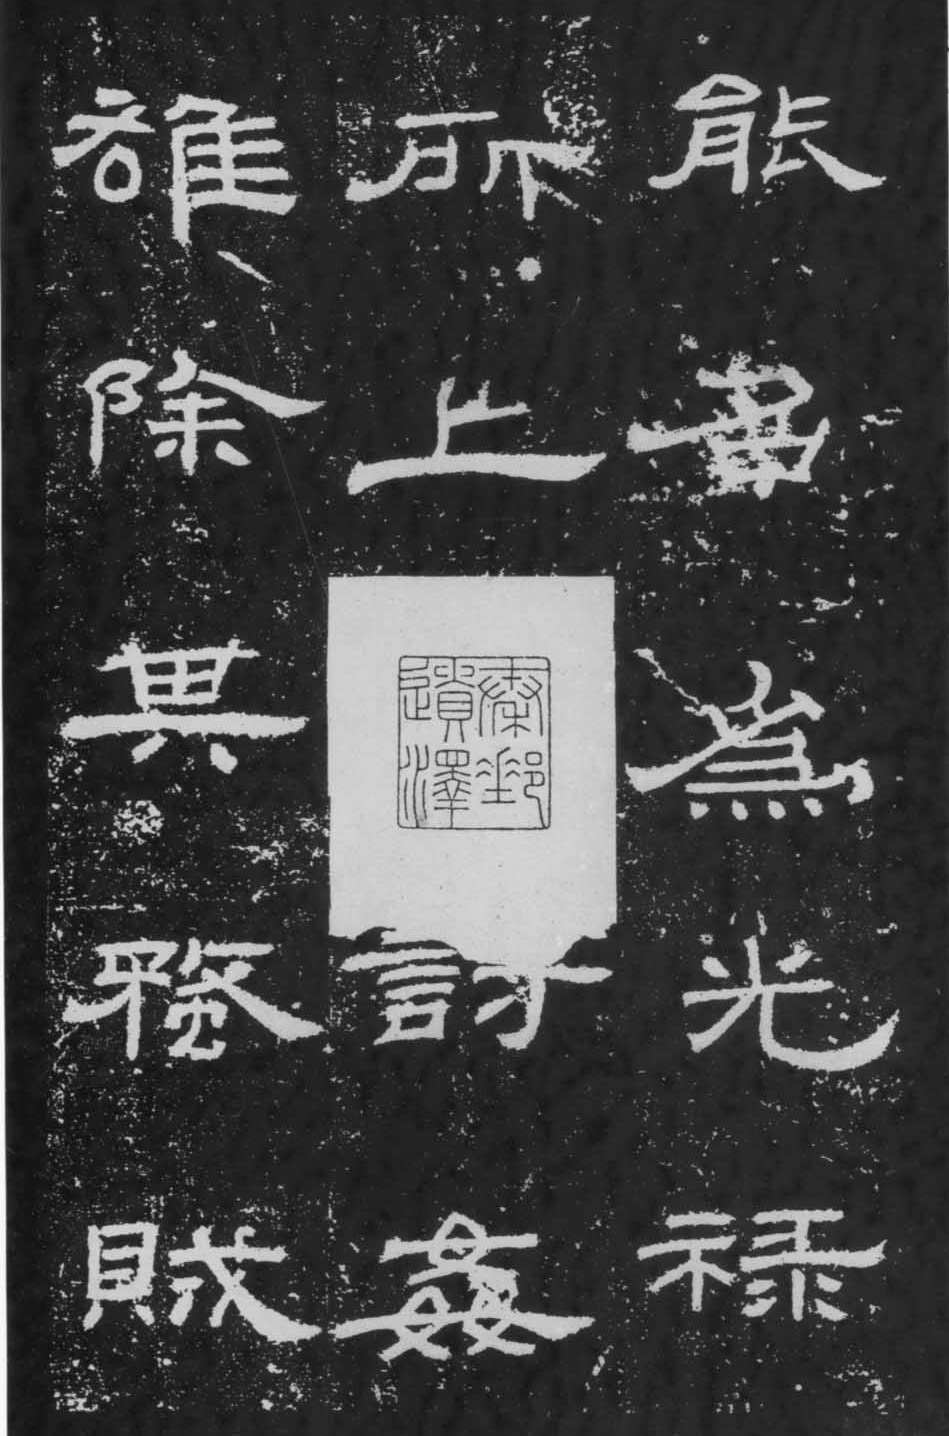 能為光祿
所上討姦
雄除其蝥賊
秦郵
遺澤